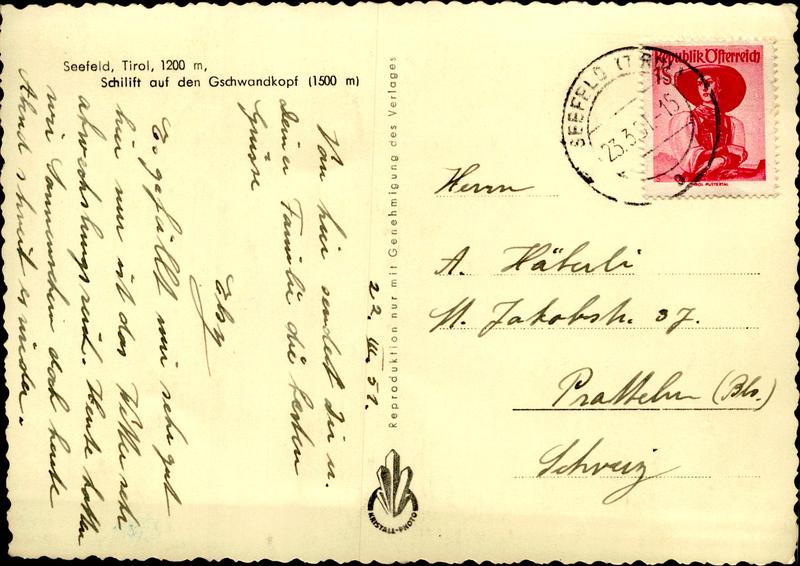 Seefeld, Tirol, 1200 m,
Schilift auf den Gschwandkopf (1500 m)
22. III. 51.
Von hier sendet Dir u.
Deiner Familie die besten
Grüsse
Es gefällt mir sehr gut
hier nur ist das Wetter sehr
abwechslungsreich. Heute hatten
wir Sonnenschein doch heute
Abend schneit es wieder.
Reproduktion nur mit Genehmigung des Verlages
KRISTALL-PHOTO
SEEFELD (TIROL)
23.3.51.-15
Republik Österreich
1S
TIROL PUSTERTAL
Herrn
A. Häberli
St. Jakobstr. 37.
Pratteln (Bls.)
Schweiz